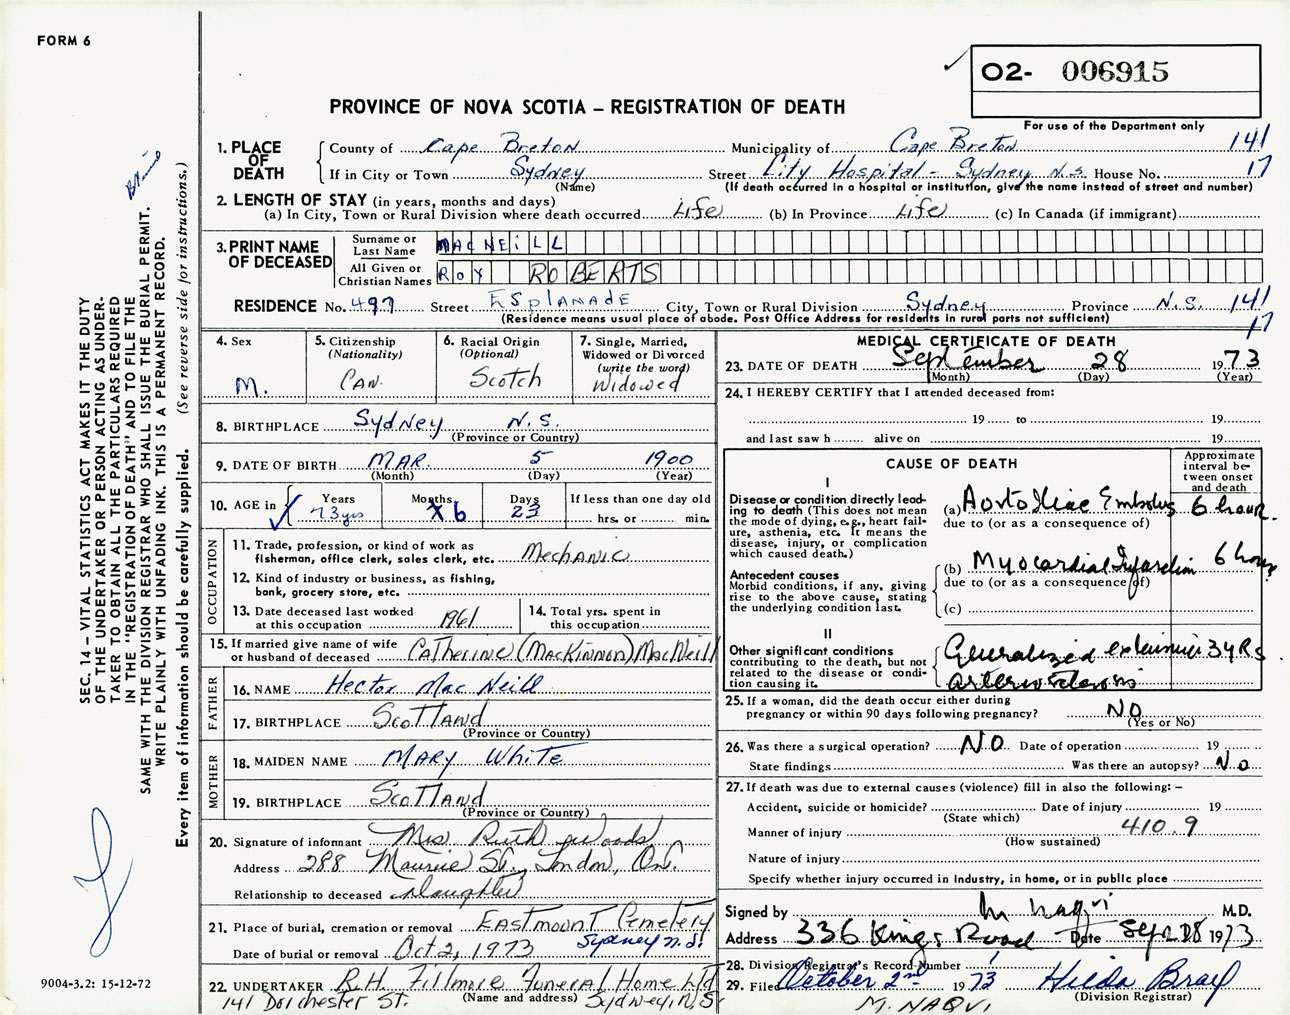 FORM 6
O2- 006915
For use of the Department only
PROVINCE OF NOVA SCOTIA – REGISTRATION OF DEATH
1. PLACE OF DEATH
County of Cape Breton Municipality of Cape Breton 141
If in City or Town Sydney Street City Hospital - Sydney N.S. House No. 17
(Name) (If death occurred in a hospital or institution, give the name instead of street and number)
2. LENGTH OF STAY (in years, months and days)
(a) In City, Town or Rural Division where death occurred Life (b) In Province Life (c) In Canada (if immigrant)
3. PRINT NAME OF DECEASED
Surname or Last Name MACNEILL
All Given or Christian Names ROY ROBERTS
RESIDENCE No. 497 Street ESPLANADE City, Town or Rural Division Sydney Province N.S. 141
(Residence means usual place of abode. Post Office Address for residents in rural parts not sufficient) 17
4. Sex M.
5. Citizenship (Nationality) CAN.
6. Racial Origin (Optional) Scotch
7. Single, Married, Widowed or Divorced (write the word) Widowed
8. BIRTHPLACE Sydney N.S.
(Province or Country)
9. DATE OF BIRTH MAR. 5 1900
(Month) (Day) (Year)
10. AGE in Years 73 yrs Months 6 Days 23 If less than one day old
hrs. or min.
OCCUPATION
11. Trade, profession, or kind of work as
fisherman, office clerk, sales clerk, etc. Mechanic
12. Kind of industry or business, as fishing,
bank, grocery store, etc.
13. Date deceased last worked
at this occupation 1961
14. Total yrs. spent in
this occupation
15. If married give name of wife
or husband of deceased Catherine (MacKinnon) MacNeill
FATHER
16. NAME Hector MacNeill
17. BIRTHPLACE Scotland
(Province or Country)
MOTHER
18. MAIDEN NAME MARY White
19. BIRTHPLACE Scotland
(Province or Country)
20. Signature of informant Mrs. Ruth Woods
Address 288 Maurice St., London, Ont.
Relationship to deceased Daughter
21. Place of burial, cremation or removal Eastmount Cemetery
Sydney N.S.
Date of burial or removal Oct 2, 1973
22. UNDERTAKER R.H. Fillmore Funeral Home Ltd
141 Dorchester St. (Name and address) Sydney, N.S.
MEDICAL CERTIFICATE OF DEATH
23. DATE OF DEATH September 28 1973
(Month) (Day) (Year)
24. I HEREBY CERTIFY that I attended deceased from:
19 to 19
and last saw h alive on 19
CAUSE OF DEATH
Approximate interval between onset and death
I
Disease or condition directly leading to death (This does not mean the mode of dying, e.g., heart failure, asthenia, etc. It means the disease, injury, or complication which caused death.)
(a) Aorto Iliac Embolus 6 hour.
due to (or as a consequence of)
Antecedent causes
Morbid conditions, if any, giving rise to the above cause, stating the underlying condition last.
(b) Myocardial Infarction 6 hours
due to (or as a consequence of)
(c)
II
Other significant conditions contributing to the death, but not related to the disease or condition causing it.
Generalized 3 YRS.
arteriosclerosis
25. If a woman, did the death occur either during
pregnancy or within 90 days following pregnancy? NO
(Yes or No)
26. Was there a surgical operation? NO Date of operation 19
State findings Was there an autopsy? No
27. If death was due to external causes (violence) fill in also the following: –
Accident, suicide or homicide? Date of injury 19
(State which)
Manner of injury 410.9
(How sustained)
Nature of injury
Specify whether injury occurred in industry, in home, or in public place
Signed by M Naqvi M.D.
Address 336 Kings Road Date Sep 28 1973
28. Division Registrar's Record Number
29. Filed October 2nd 1973 Hilda Bray
(Division Registrar)
M. NAQVI
SEC. 14 – VITAL STATISTICS ACT MAKES IT THE DUTY
OF THE UNDERTAKER OR PERSON ACTING AS UNDER-
TAKER TO OBTAIN ALL THE PARTICULARS REQUIRED
IN THE "REGISTRATION OF DEATH" AND TO FILE THE
SAME WITH THE DIVISION REGISTRAR WHO SHALL ISSUE THE BURIAL PERMIT.
WRITE PLAINLY WITH UNFADING INK. THIS IS A PERMANENT RECORD.
Every item of information should be carefully supplied. (See reverse side for instructions.)
9004-3.2: 15-12-72